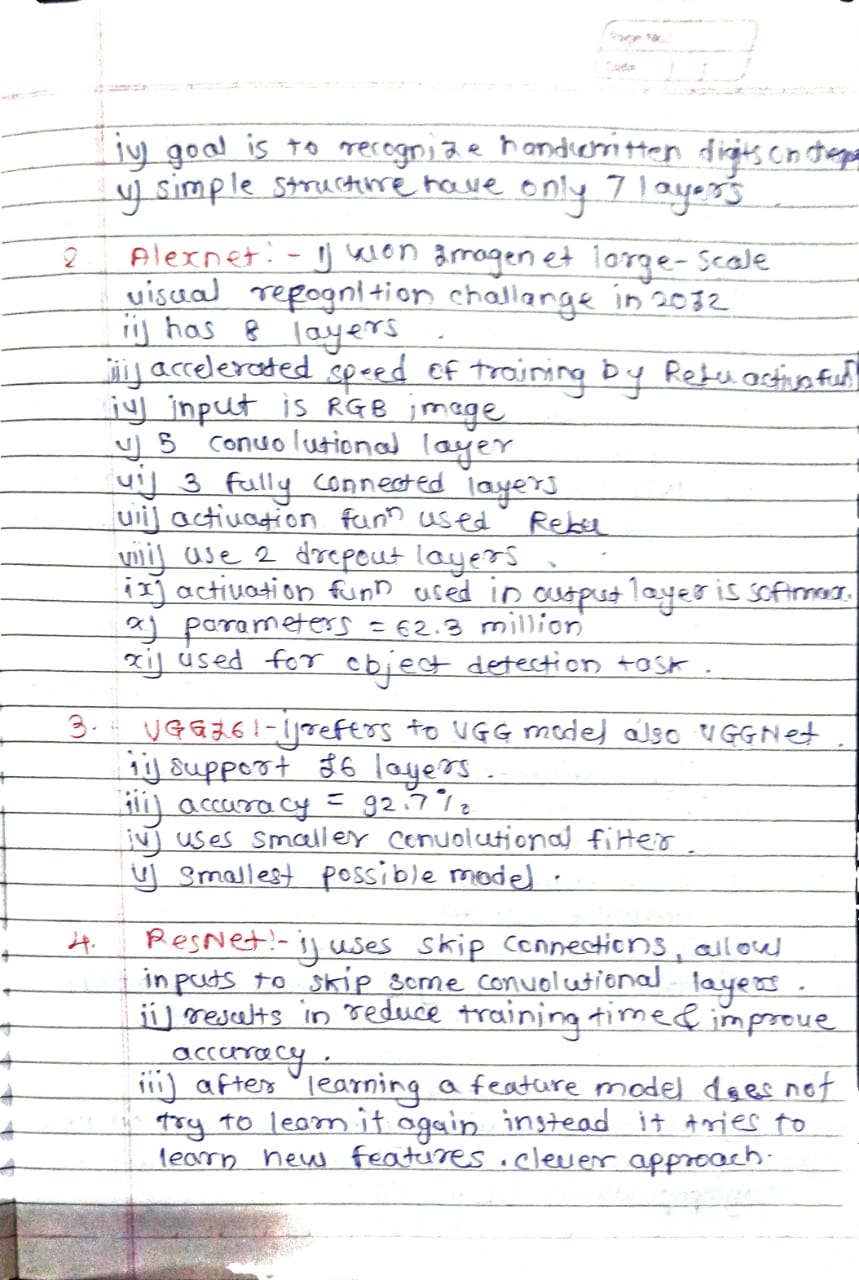 Page No.:
Date
iv) goal is to recognize handwritten digits on
v) simple structure have only 7 layers
2 Alexnet :- i) won Imagenet large-scale
visual repognition challange in 2012
ii) has 8 layers .
iii) accelerated speed of training by Relu activa fun
iv) input is RGB image
v) 5 convolutional layer
vi) 3 fully connected layers
vii) activation funn used Relu
viii) use 2 dropout layers .
ix) activation funn used in output layer is softmax.
x) parameters = 62.3 million
xi) used for object detection task .
3. VGG16 :- i) refers to VGG model also VGGNet .
ii) support 16 layers .
iii) accuracy = 92.7%
iv) uses smaller convolutional filter .
v) smallest possible model .
4. ResNet :- i) uses skip connections, allow
inputs to skip some convolutional layers .
ii) results in reduce training time & improve
accuracy .
iii) after learning a feature model does not
try to learn it again instead it tries to
learn new features . clever approach .